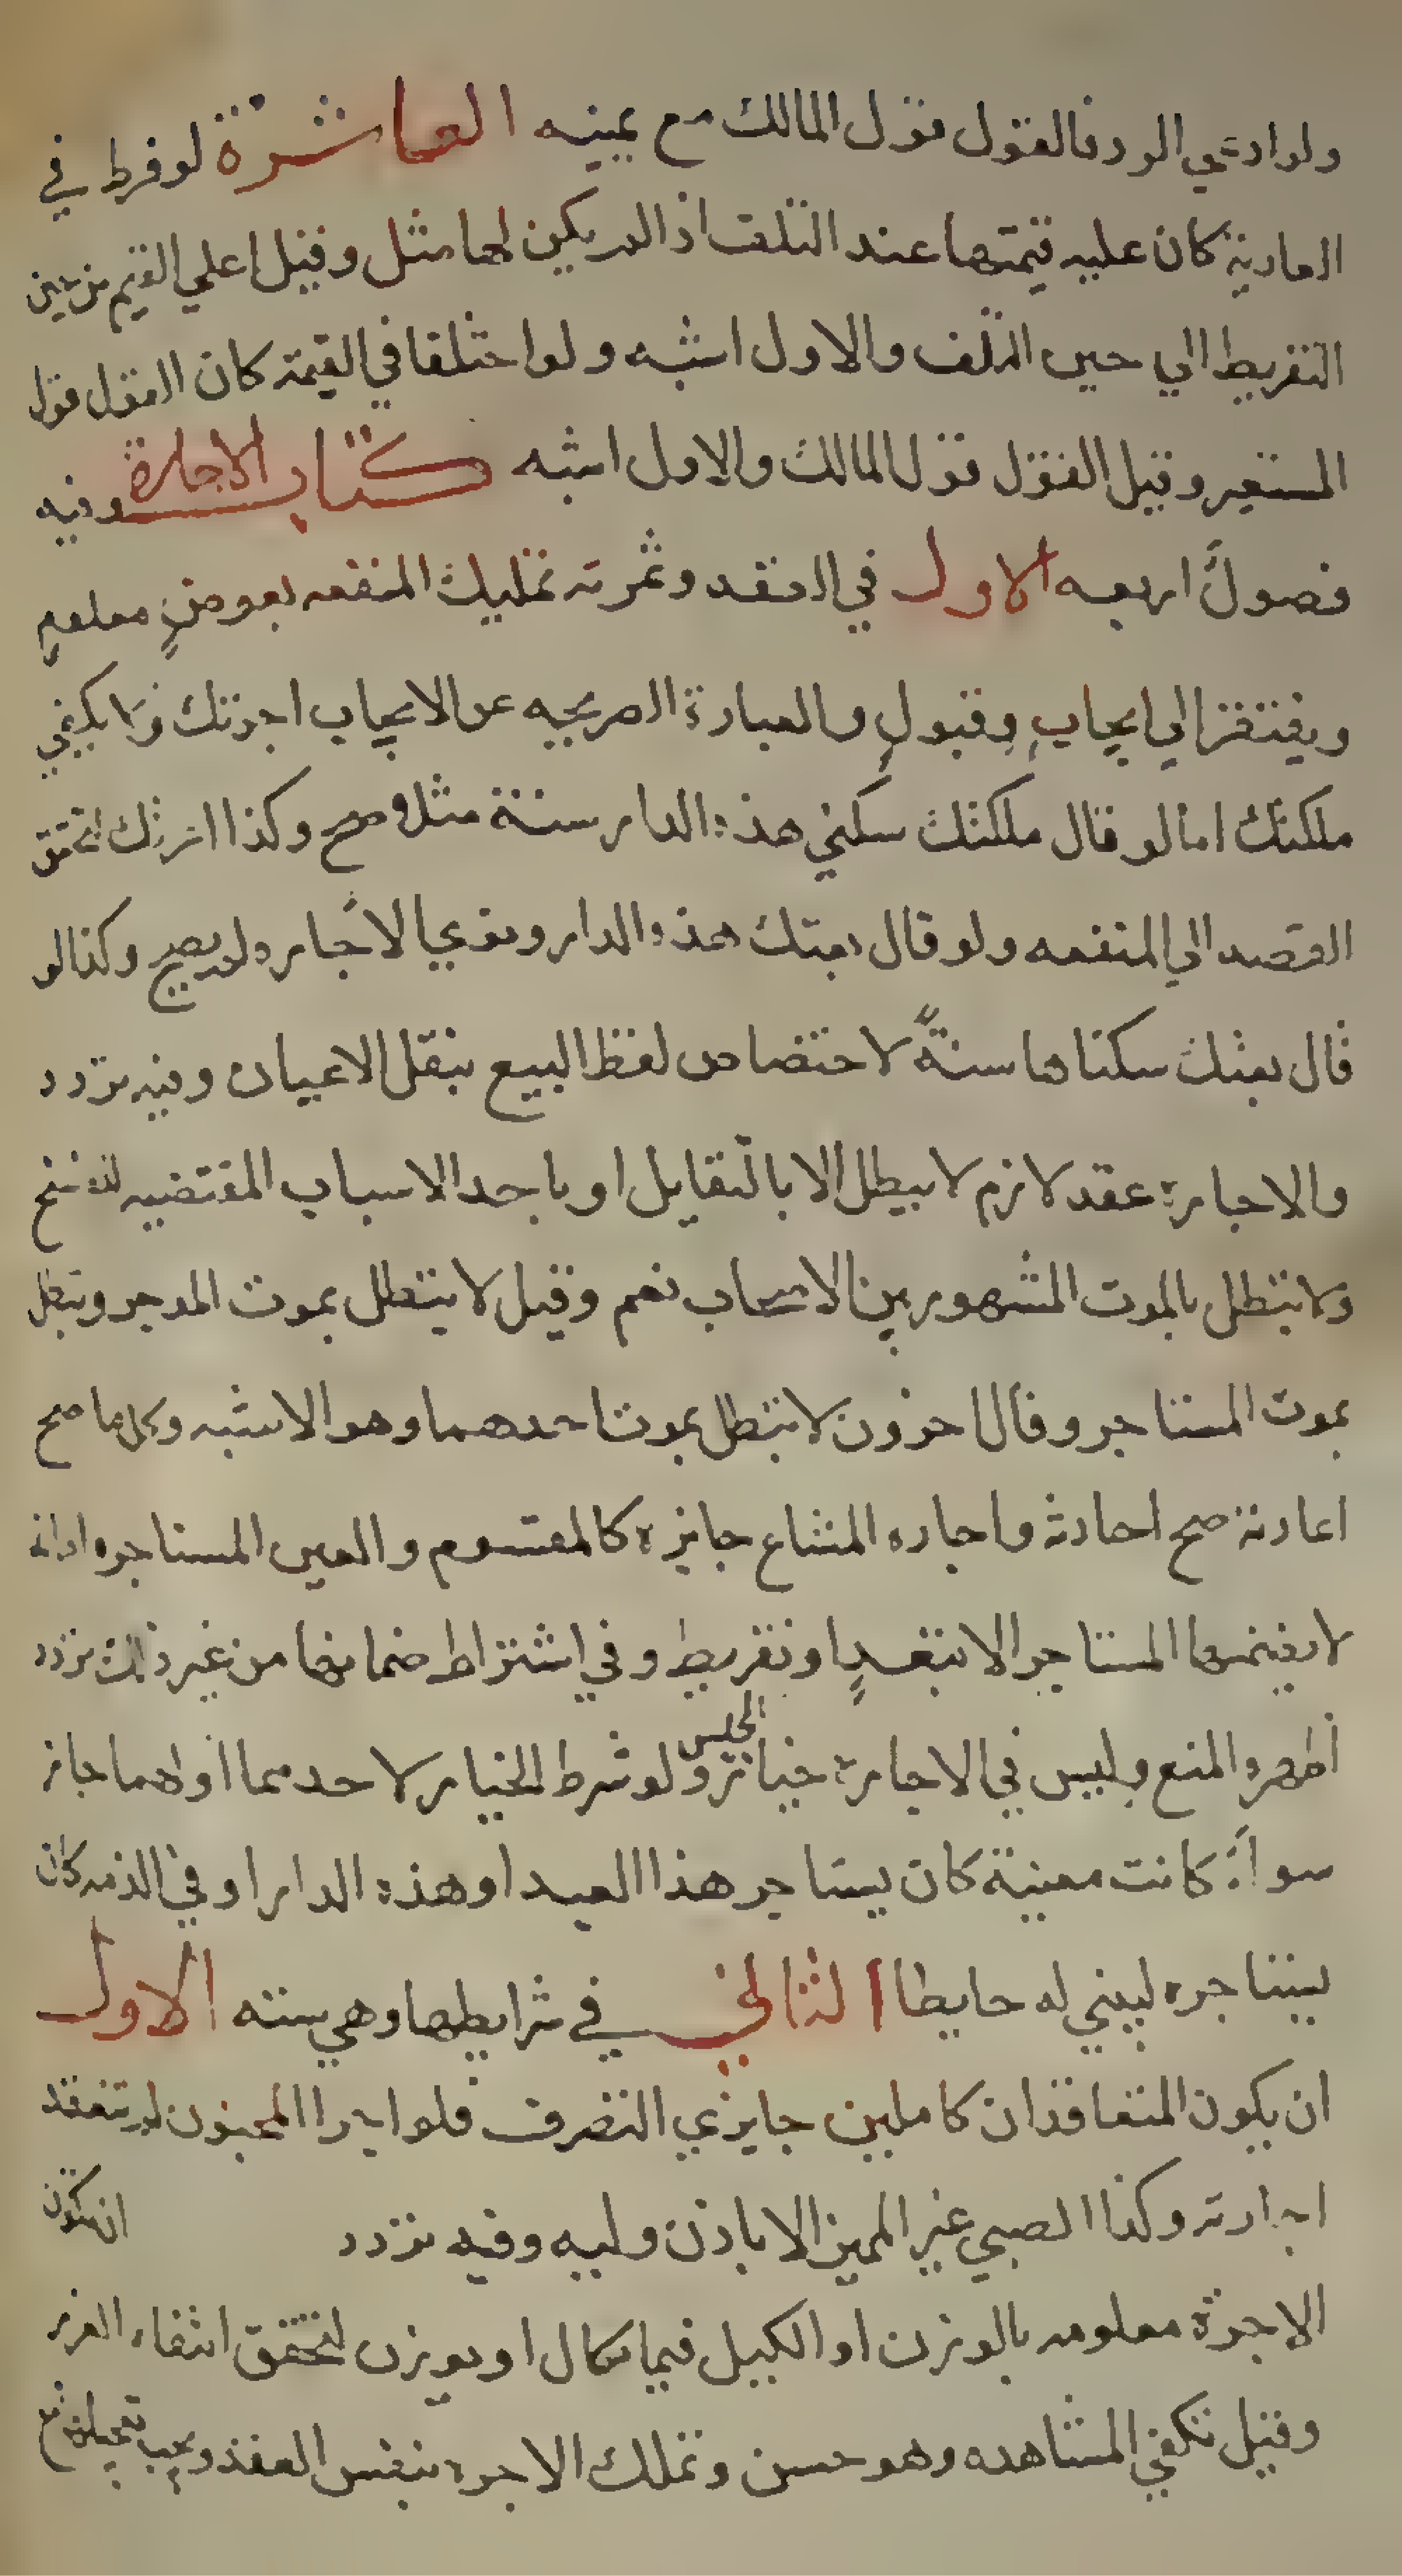 ولو ادعي الرد فالقول قول المالك مع يمينه العاشرة لو فرط في
العارية كان عليه قيمتها عند التلف اذا لم يكن لها مثل وقيل اعلي القيم من حين
التفريط الي حين التلف والاول اشبه ولو اختلفا في القيمة كان القول قول
المستعير وقيل القول قول المالك والاول اشبه كتاب الاجارة وفيه
فصولٌ اربعه الاول في العقد وثمرته تمليك المنفعه بعوضٍ معلومٍ
ويفتقر الي ايجابٍ وقبولٍ والعبارة الصريحه عن الايجاب اجرتك ولا يكفي
ملكتك اما لو قال ملكتك سكني هذه الدار سنة مثلا صح وكذا اعرتك لتحقق
القصد الي المنفعه ولو قال بعتك هذه الدار ونوي الاجاره لم يصح وكذا لو
قال بعتك سكناها سنةً لاختصاص لفظ البيع بنقل الاعيان وفيه تردد
والاجاره عقد لازم لا يبطل الا بالتقايل او باحد الاسباب المقتضيه للفسخ
ولا تبطل بالموت المشهور بين الاصحاب نعم وقيل لا يبطل بموت الموجر وتبطل
بموت المستاجر وقال اخرون لا تبطل بموت احدهما وهو الاشبه وكل ما صح
اعارته صح اجارته واجاره المشاع جايزه كالمقسوم والعين المستاجره امانه
لا يضمنها المستاجر الا بتعدٍ او تفريط وفي اشتراط ضمانها من غير ذلك تردد
اظهره المنع وليس في الاجاره خيار المجلس ولو شرط الخيار لاحدهما او لهما جاز
سواءً كانت معينة كان يستاجر هذا العبد او هذه الدار او في الذمه كان
يستاجره ليبني له حايطا الثاني في شرايطها وهي سته الاول
ان يكون المتعاقدان كاملين جايزي التصرف فلو اجر المجنون لم تنعقد
اجارته وكذا الصبي غير المميز الا باذن وليه وفيه تردد ان تكون
الاجرة معلومه بالوزن او الكيل فيما يكال او يوزن لتحقق انتفاء الغرر
وقيل تكفي المشاهده وهو حسن وتملك الاجره بنفس العقد ويجب تعجيلها مع